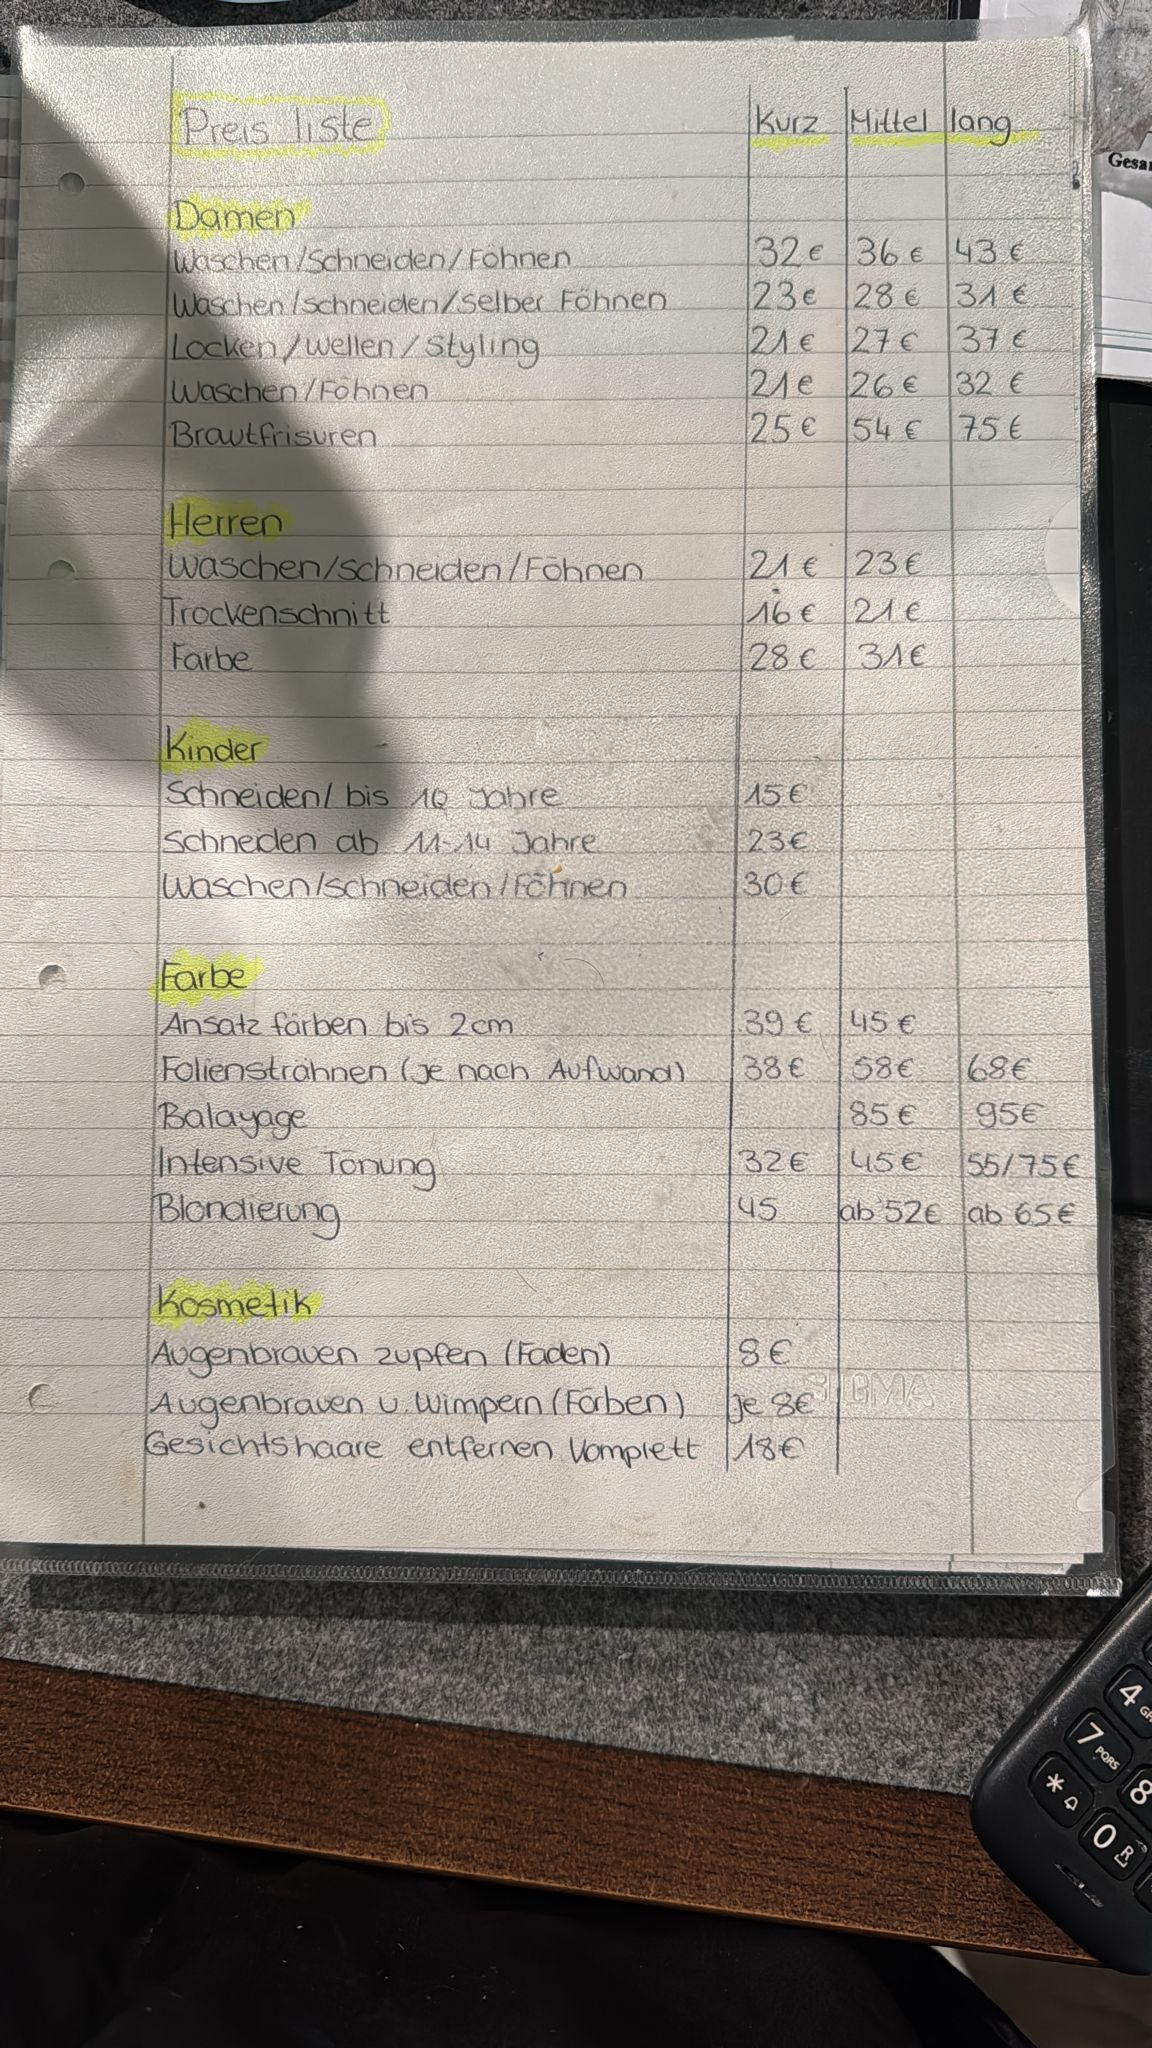 Preis liste Kurz Mittel lang
Damen
Waschen/Schneiden/Föhnen 32€ 36€ 43€
Waschen/schneiden/selber Föhnen 23€ 28€ 31€
Locken/Wellen/Styling 21€ 27€ 37€
Waschen/Föhnen 21€ 26€ 32€
Brautfrisuren 25€ 54€ 75€
Herren
Waschen/schneiden/Föhnen 21€ 23€
Trockenschnitt 16€ 21€
Farbe 28€ 31€
Kinder
Schneiden/ bis 10 Jahre 15€
Schneden ab 11-14 Jahre 23€
Waschen/schneiden/Föhnen 30€
Farbe
Ansatz färben bis 2cm 39€ 45€
Foliensträhnen (je nach Aufwand) 38€ 58€ 68€
Balayage 85€ 95€
Intensive Tönung 32€ 45€ 55/75€
Blondierung 45 ab 52€ ab 65€
Kosmetik
Augenbrauen zupfen (Faden) 8€
Augenbrauen u. Wimpern (Färben) je 8€
Gesichtshaare entfernen komplett 18€
4
7 PQRS
8
*
0 R